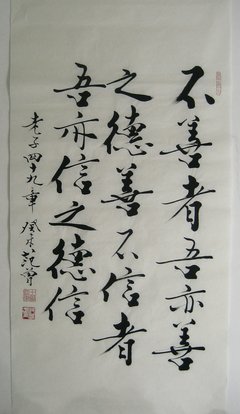 不善者吾亦善
之德善不信者
吾亦信之德信
老子四十九章 癸未 范曾